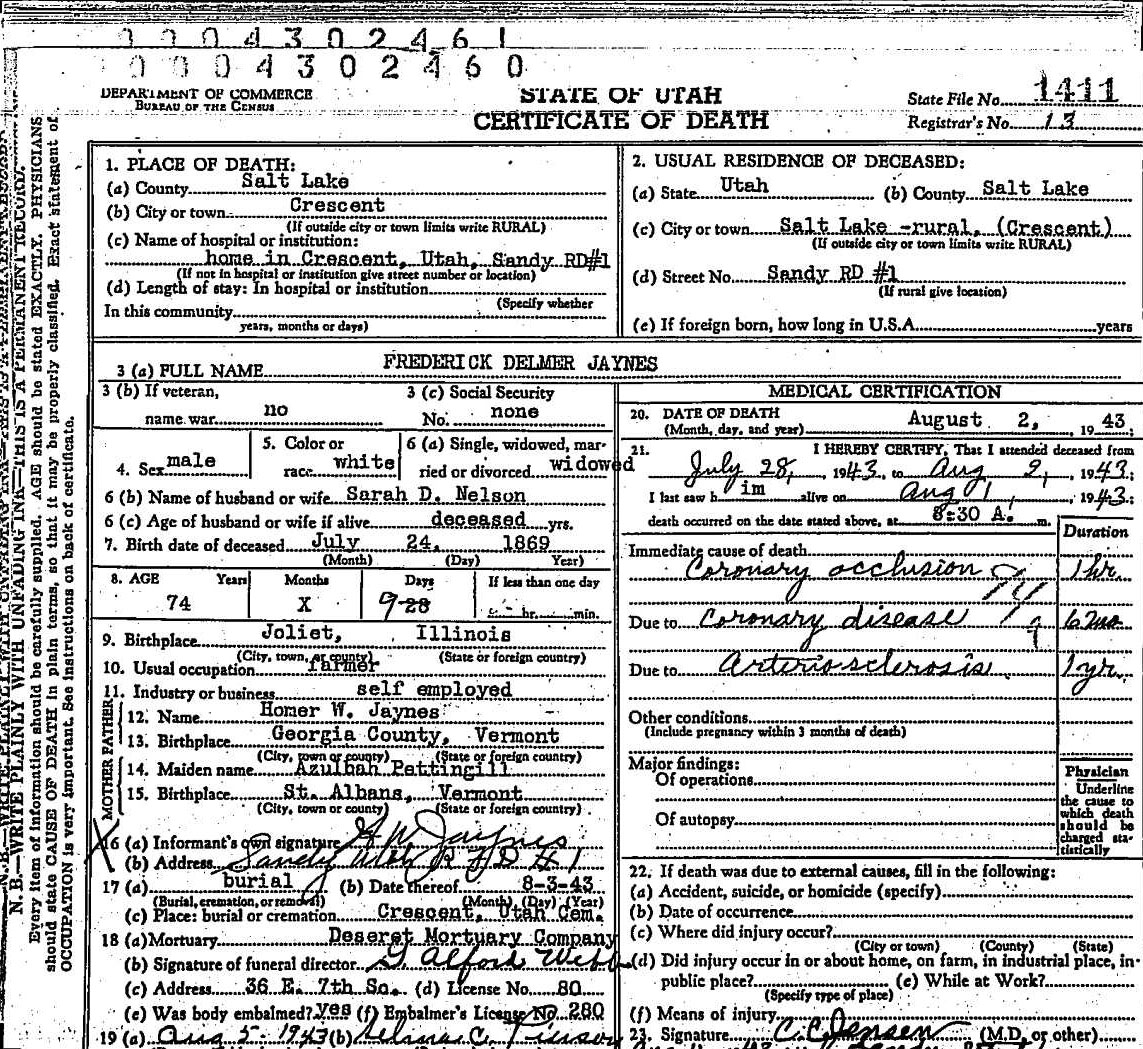 0 0 0 4 3 0 2 4 6 1
0 0 0 4 3 0 2 4 6 0
DEPARTMENT OF COMMERCE
BUREAU OF THE CENSUS
STATE OF UTAH
CERTIFICATE OF DEATH
State File No. 1411
Registrar's No. 13
N. B.—WRITE PLAINLY WITH UNFADING INK—THIS IS A PERMANENT RECORD.
Every item of information should be carefully supplied. AGE should be stated EXACTLY. PHYSICIANS
should state CAUSE OF DEATH in plain terms, so that it may be properly classified. Exact statement of
OCCUPATION is very important. See instructions on back of certificate.
1. PLACE OF DEATH:
(a) County Salt Lake
(b) City or town Crescent
(If outside city or town limits write RURAL)
(c) Name of hospital or institution:
home in Crescent, Utah, Sandy RD#1
(If not in hospital or institution give street number or location)
(d) Length of stay: In hospital or institution
(Specify whether
In this community
years, months or days)
2. USUAL RESIDENCE OF DECEASED:
(a) State Utah (b) County Salt Lake
(c) City or town Salt Lake -rural, (Crescent)
(If outside city or town limits write RURAL)
(d) Street No. Sandy RD #1
(If rural give location)
(e) If foreign born, how long in U.S.A. years
3 (a) FULL NAME FREDERICK DELMER JAYNES
3 (b) If veteran,
name war no
3 (c) Social Security
No. none
4. Sex male
5. Color or
race white
6 (a) Single, widowed, mar-
ried or divorced widowed
6 (b) Name of husband or wife Sarah D. Nelson
6 (c) Age of husband or wife if alive deceased yrs.
7. Birth date of deceased July 24, 1869
(Month) (Day) Year)
8. AGE Years Months Days If less than one day
74 X 9 hr. min.
9. Birthplace Joliet, Illinois
(City, town, or county) (State or foreign country)
10. Usual occupation farmer
11. Industry or business self employed
FATHER
12. Name Homer W. Jaynes
13. Birthplace Georgia County, Vermont
(City, town or county) (State or foreign country)
MOTHER
14. Maiden name Azulbah Pettingill
15. Birthplace St. Albans, Vermont
(City, town or county) (State or foreign country)
X 16 (a) Informant's own signature Jaynes
(b) Address Sandy Utah R F D # 1
17 (a) burial (b) Date thereof 8-3-43
(Burial, cremation, or removal) (Month) (Day) (Year)
(c) Place: burial or cremation Crescent, Utah Cem.
18 (a) Mortuary Deseret Mortuary Company
(b) Signature of funeral director Alford Webb
(c) Address 36 E. 7th So. (d) License No. 80
(e) Was body embalmed? yes (f) Embalmer's License No 280
19 (a) Aug 5 - 1943 (b) C.
MEDICAL CERTIFICATION
20. DATE OF DEATH August 2, 19 43.
(Month, day, and year)
21. I HEREBY CERTIFY, That I attended deceased from
July 28, 1943, to Aug 2, 1943.
I last saw h im alive on Aug 1, 1943.
death occurred on the date stated above, at 8:30 A. m.
Duration
Immediate cause of death
Coronary occlusion 1 hr
Due to Coronary disease 6 mo
Due to Arteriosclerosis 1 yr.
Other conditions
(Include pregnancy within 3 months of death)
Major findings:
Of operations
Of autopsy
Physician
Underline
the cause to
which death
should be
charged sta-
tistically
22. If death was due to external causes, fill in the following:
(a) Accident, suicide, or homicide (specify)
(b) Date of occurrence
(c) Where did injury occur?
(City or town) (County) (State)
(d) Did injury occur in or about home, on farm, in industrial place, in-
public place? (e) While at Work?
(Specify type of place)
(f) Means of injury
23. Signature C. C. Jensen (M.D. or other)